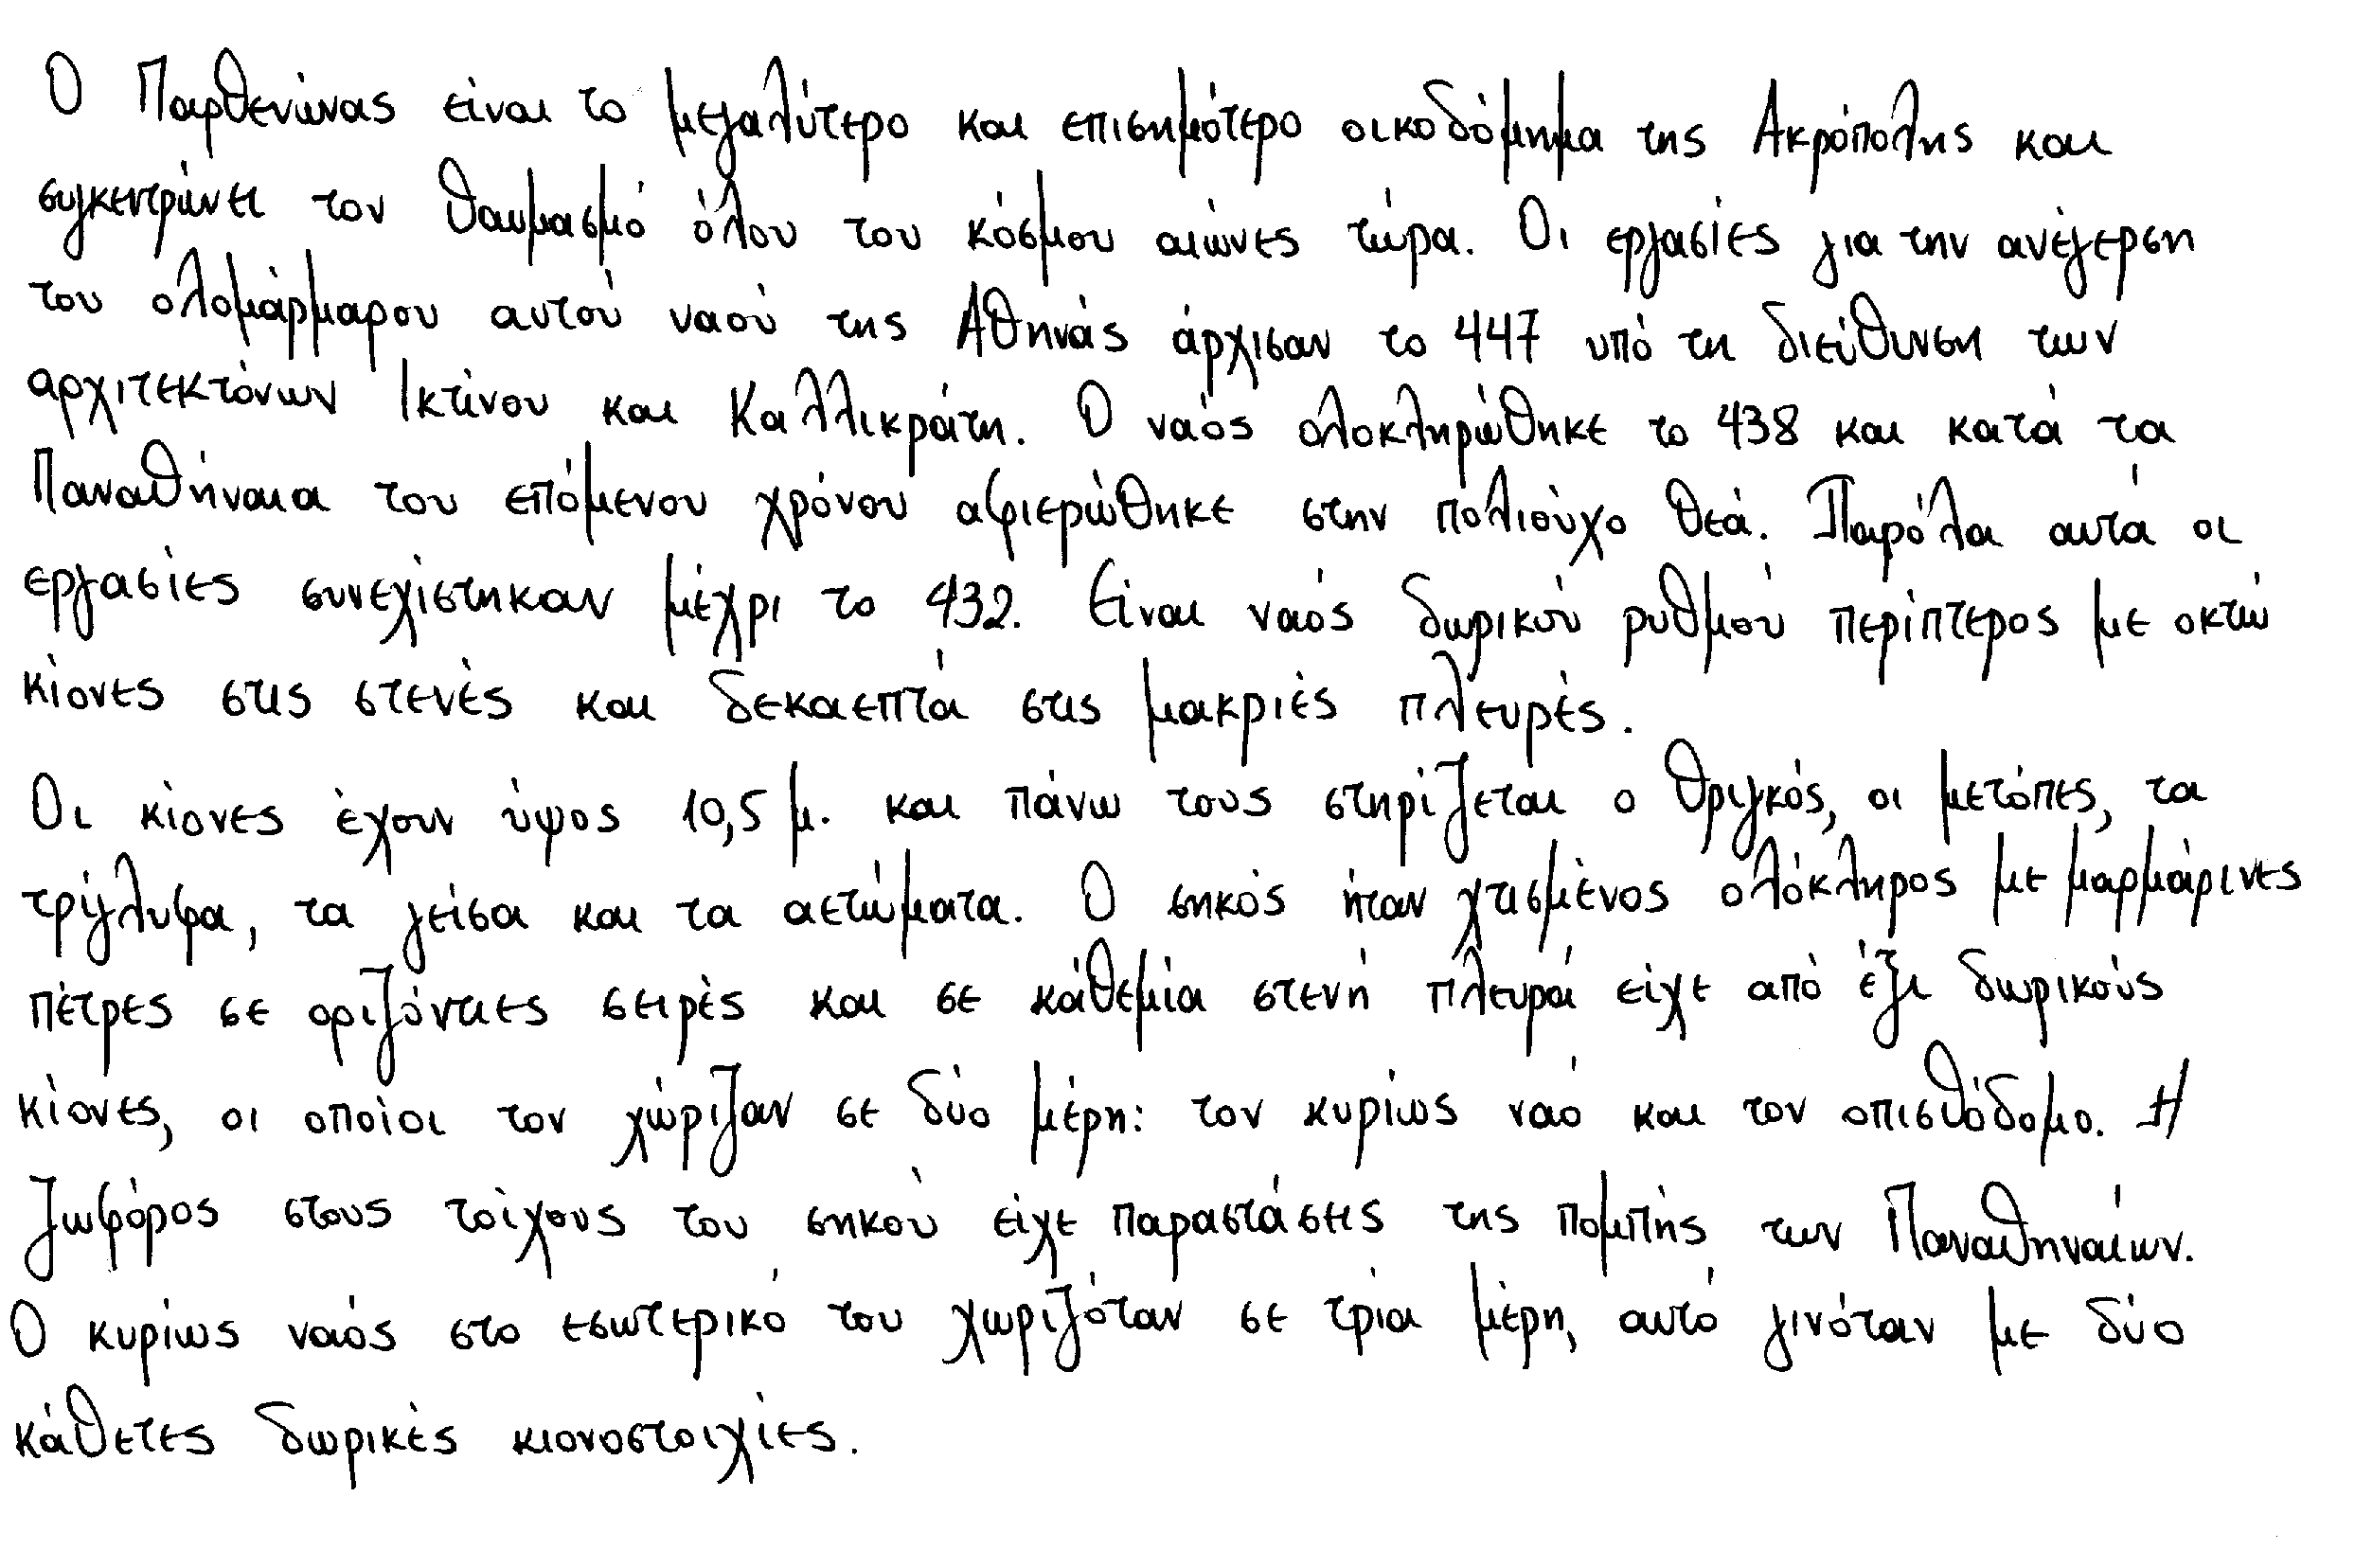 Ο Παρθενώνας είναι το μεγαλύτερο και επισημότερο οικοδόμημα της Ακρόπολης και
συγκεντρώνει τον θαυμασμό όλου του κόσμου αιώνες τώρα. Οι εργασίες για την ανέγερση
του ολομάρμαρου αυτού ναού της Αθηνάς άρχισαν το 447 υπό τη διεύθυνση των
αρχιτεκτόνων Ικτίνου και Καλλικράτη. Ο ναός ολοκληρώθηκε το 438 και κατά τα
Παναθήναια του επόμενου χρόνου αφιερώθηκε στην πολιούχο θεά. Παρόλα αυτά οι
εργασίες συνεχίστηκαν μέχρι το 432. Είναι ναός δωρικού ρυθμού περίπτερος με οκτώ
κίονες στις στενές και δεκαεπτά στις μακριές πλευρές.
Οι κίονες έχουν ύψος 10,5 μ. και πάνω τους στηρίζεται ο θριγκός, οι μετόπες, τα
τρίγλυφα, τα γείσα και τα αετώματα. Ο σηκός ήταν χτισμένος ολόκληρος με μαρμάρινες
πέτρες σε οριζόντιες σειρές και σε κάθεμία στενή πλευρά είχε από έξι δωρικούς
κίονες, οι οποίοι τον χώριζαν σε δύο μέρη: τον κυρίως ναό και τον οπισθόδομο. Η
ζωφόρος στους τοίχους του σηκού είχε παραστάσεις της πομπής των Παναθηναίων.
Ο κυρίως ναός στο εσωτερικό του χωριζόταν σε τρία μέρη, αυτό γινόταν με δύο
κάθετες δωρικές κιονοστοιχίες.